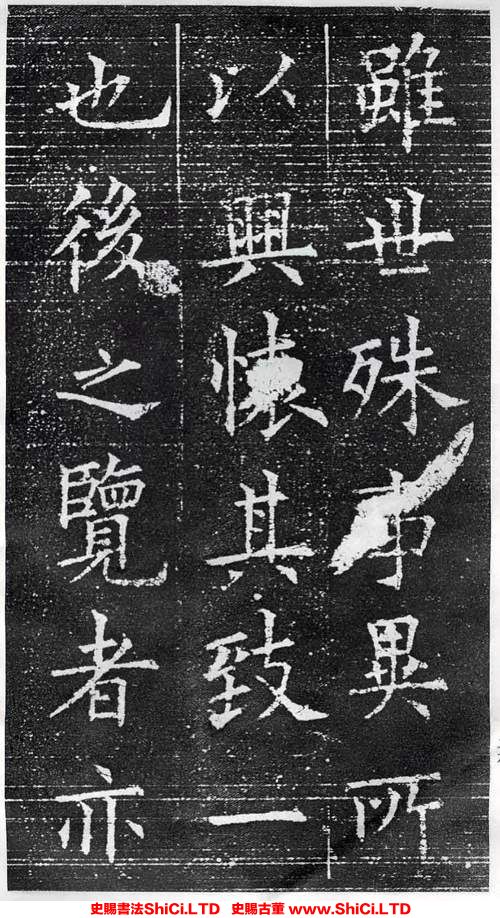 雖世殊事異所
以興懷其致一
也後之覽者亦
史賜書法ShiCi.LTD 史賜古董 www.ShiCi.LTD